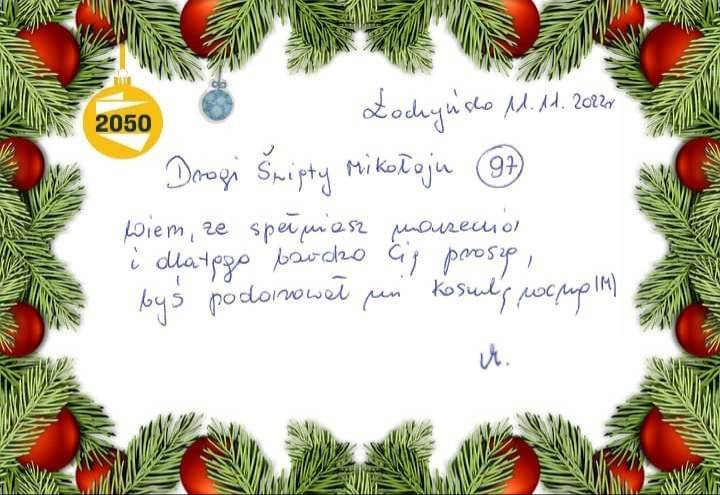 2050
Łochyńsko 11.11.2022r
Drogi Święty Mikołaju 97
Wiem, że spełniasz marzenia
i dlatego bardzo Cię proszę,
byś podarował mi koszulę nocną (M)